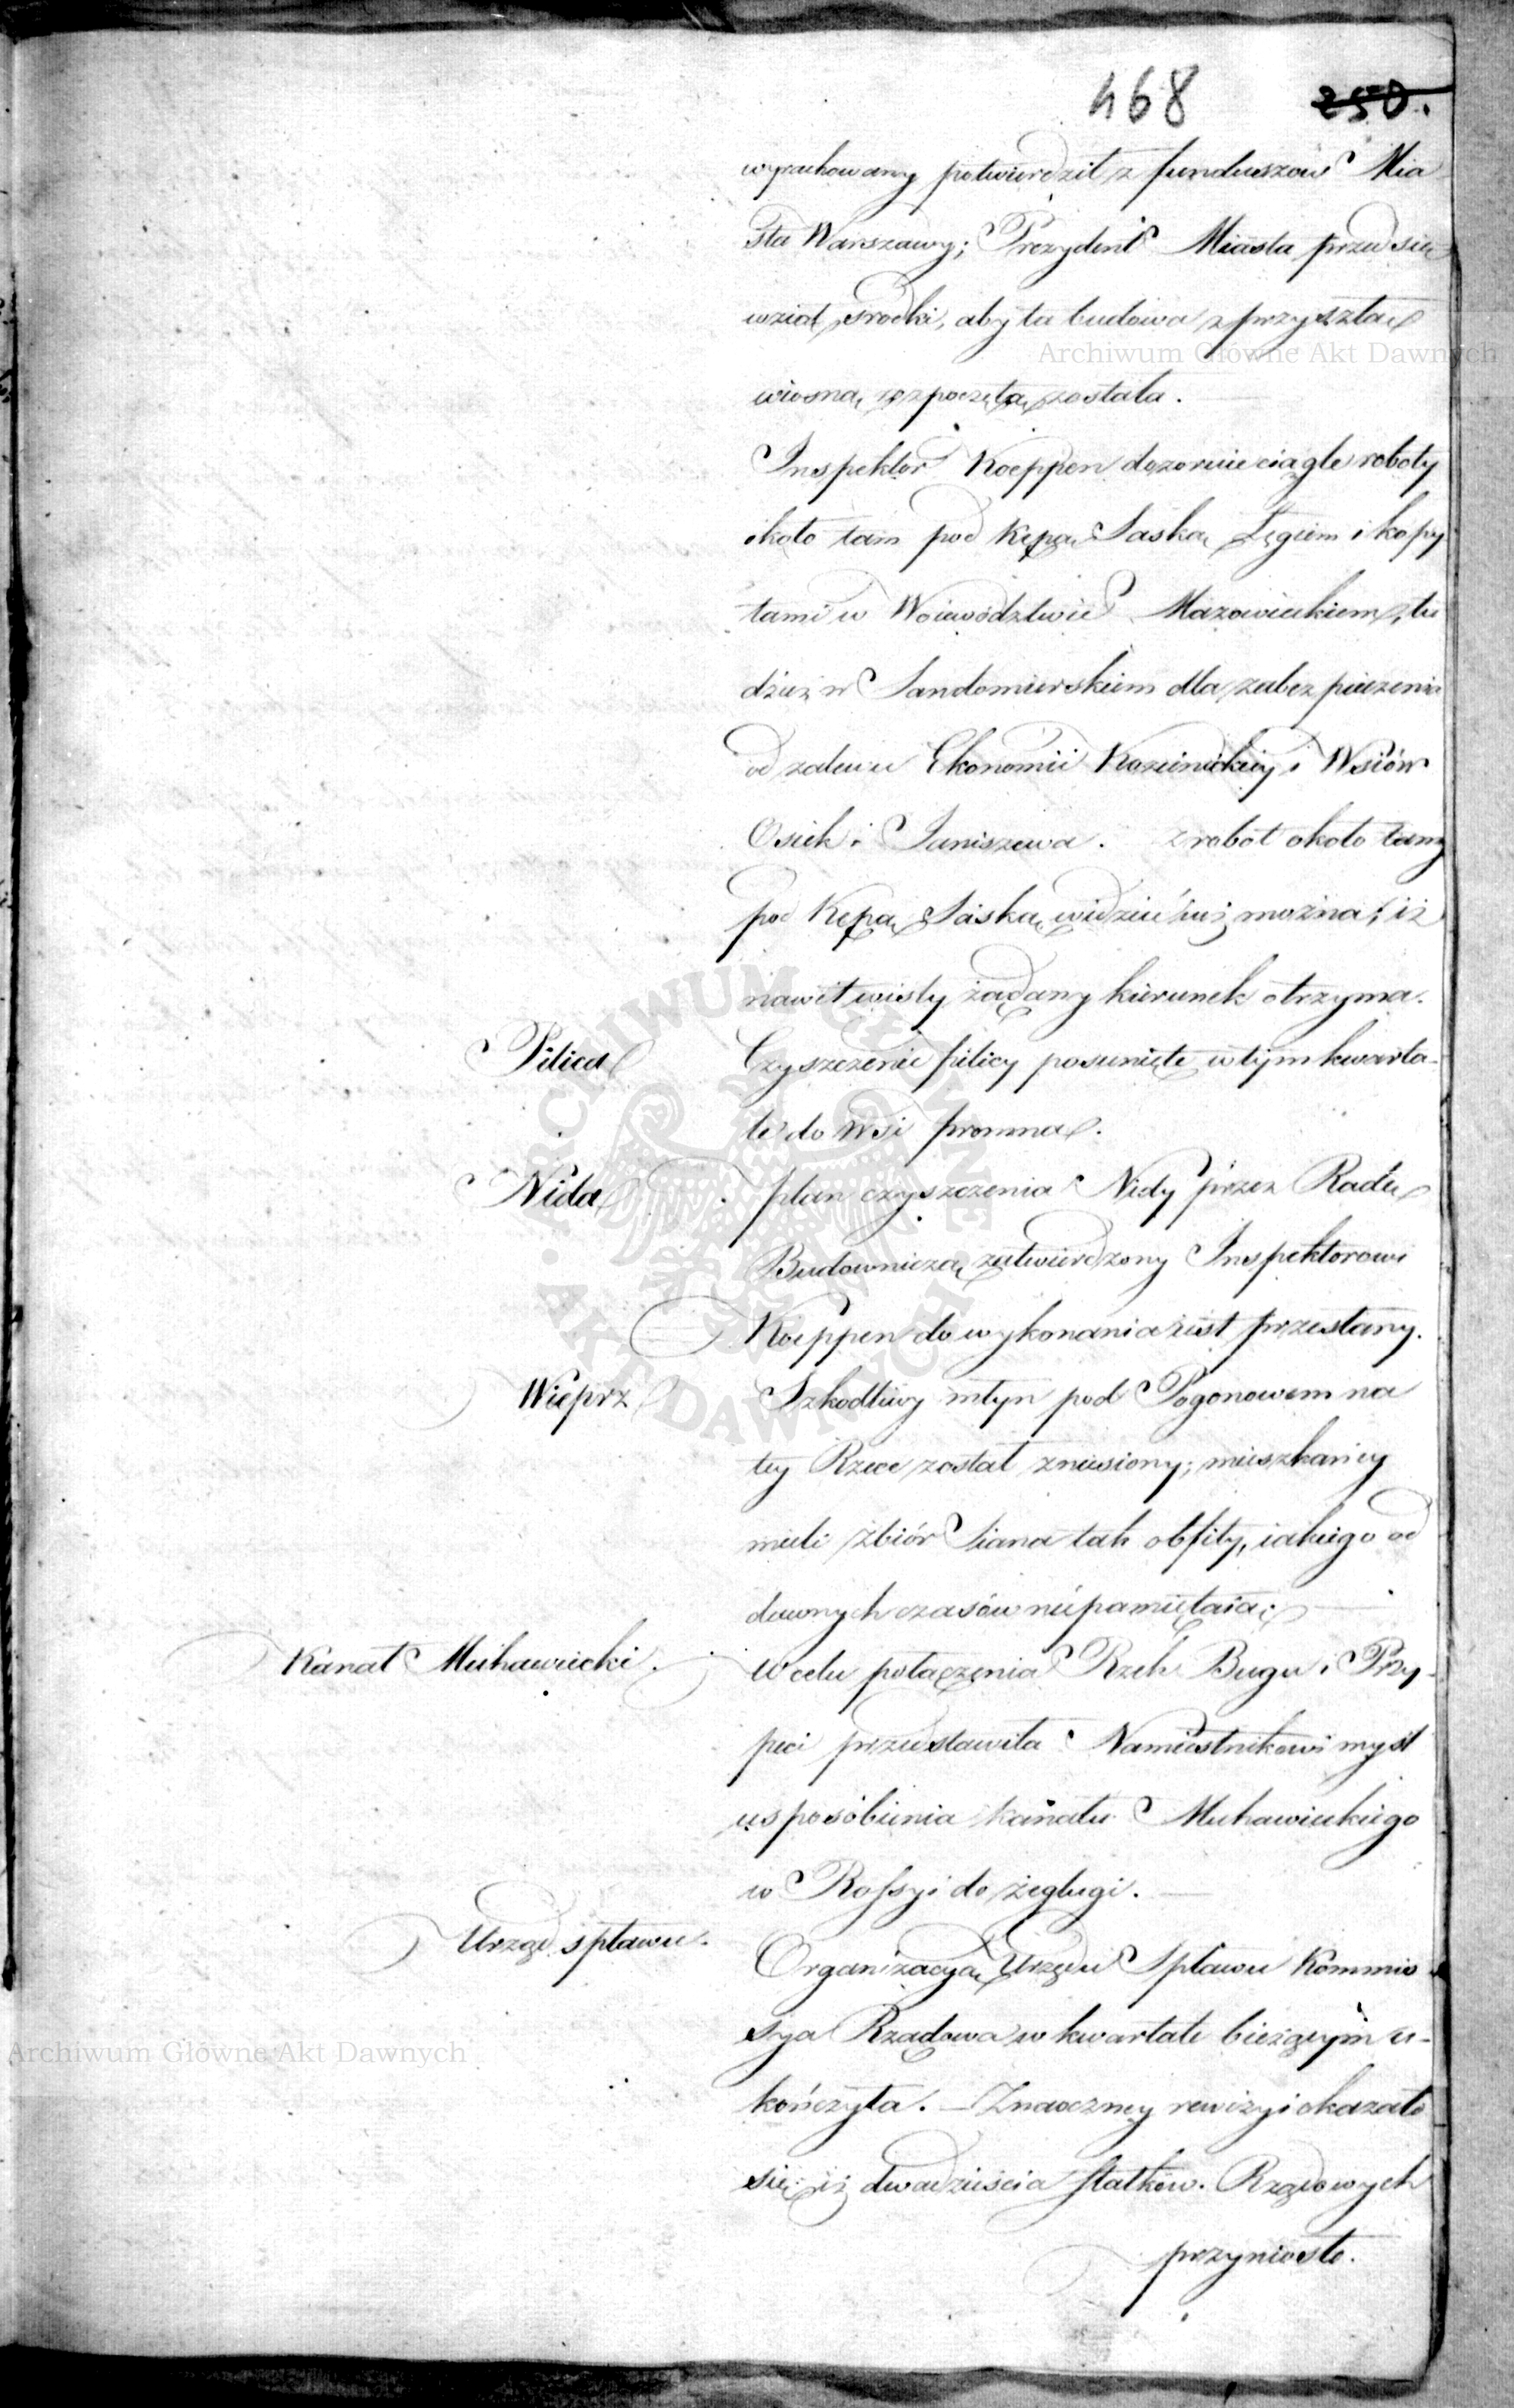 468 250.
wyrachowany potwierdził z funduszów Mia
sta Warszawy; Prezydent Miasta przedsię
wziął środki, aby ta budowa z przyszłą
wiosną rozpoczętą została.
Inspektor Koeppen dozoruie ciągle roboty
około tam pod Kępą Saską, Łęgiem i kopy
tami w Woiewództwie Mazowieckiem, tu
dzież w Sandomierskiem dla zabezpieczenia
od zalewu Ekonomii Kozienickiey i Wsiów
Osiek i Janiszewa. z robot około tamy
pod Kępą Saską widzieć iuż można, iż
nawet wisły żądany kierunek otrzyma.
Pilica
Czyszczenie pilicy posunięte w tym kwarta-
le do Wsi promna.
Nida
plan czyszczenia Nidy przez Radę
Budowniczą zatwierdzony Inspektorowi
Koeppen do wykonania iest przesłany.
Wieprz
Szkodliwy młyn pod Pogonowem na
tey Rzece został zniesiony; mieszkańcy
mieli zbiór Siana tak obfity, iakiego od
dawnych czasów niepamiętaią;
Kanał Muhawiecki.
W celu połączenia Rzek Bugu i Pry-
peci przedstawiła Namiestnikowi myśl
usposobienia kanału Muhawieckiego
w Rossyi do żeglugi.
Urząd spławu.
Organizacyą Urzędu Spławu Kommis
sya Rządowa w kwartale bieżącym u-
kończyła. — Znaoczney rewizyi okazało
się, iż dwadzieścia statków Rządowych
przyniosło.
Archiwum Główne Akt Dawnych
Archiwum Główne Akt Dawnych
ARCHIWUM GŁÓWNE AKT DAWNYCH